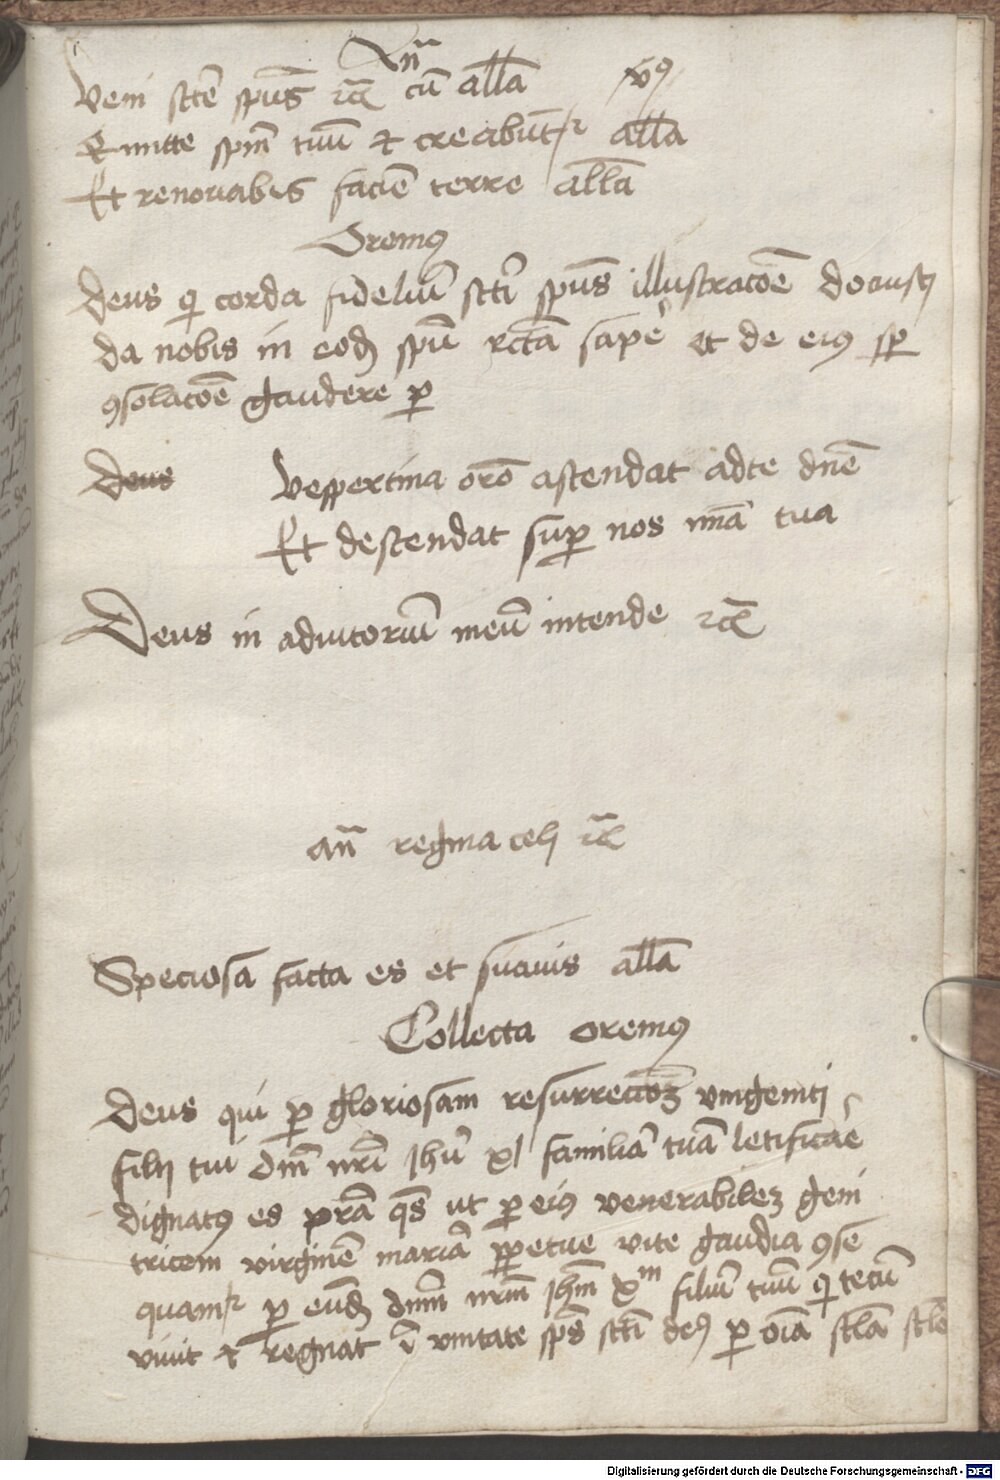 Añ
Veni sctē spūs rc̄ cū alla vꝯ
Emitte spm̄ tuū ⁊ creabūtr alla
Et renouabis faciē terre alla
Oremꝯ
Deus qi corda fideliū sctī spūs illustracōē docuistj
da nobis in eodē spū rctā sapē et de eiꝯ sp
ꝯsolacōē gaudere p
Deus Vespertina orō ascendat adte dnē
Et descendat suꝑ nos mīa tua
Deus in adiutoriū meū intende rc̄
añ regina celj rc̄
Speciosa facta es et suauis alla
Collecta oremꝯ
Deus qui ꝑ gloriosam resurreccōꝫ vnigenitj
filij tui dm̄ nrī Jhū xj familiā tuā letificāe
dignatꝯ es prā qs̄ ut ꝑ eiꝯ venerabileꝫ geni
tricem virginē mariā ꝑpetue vite gaudia ꝯse
quamr ꝑ eūdē dnm̄ nrm̄ Jhm̄ xm filiū tuū qi tecū
viuit ⁊ regnat ī vnitate spūs sctī deꝯ ꝑ oīa scla sclo
Digitalisierung gefördert durch die Deutsche Forschungsgemeinschaft - DFG